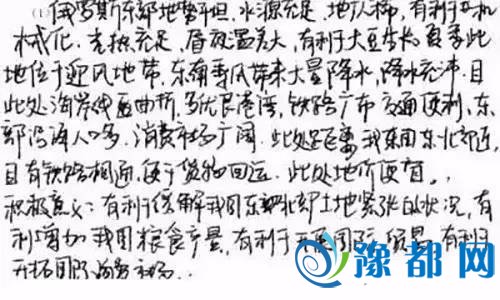 (1) 俄罗斯东部地势平坦,水源充足,地广人稀,有利于
械化。光热充足,昼夜温差大,有利于大豆生长 夏季此
地位于迎风地带,东南季风带来大量降水,降水充沛。且
此处海岸线曲折,多优良港湾,铁路广布 交通便利、东
部沿海人口多,消费市场广阔。此处距离我东国东北部近,
且有铁路相通,便于货物回运。此处地价便宜。
积极意义:有利于缓解我国东北部土地紧张的状况,有
利增加我国粮食产量,有利于开展国际贸易,有利于
开拓国际市场..
豫都网